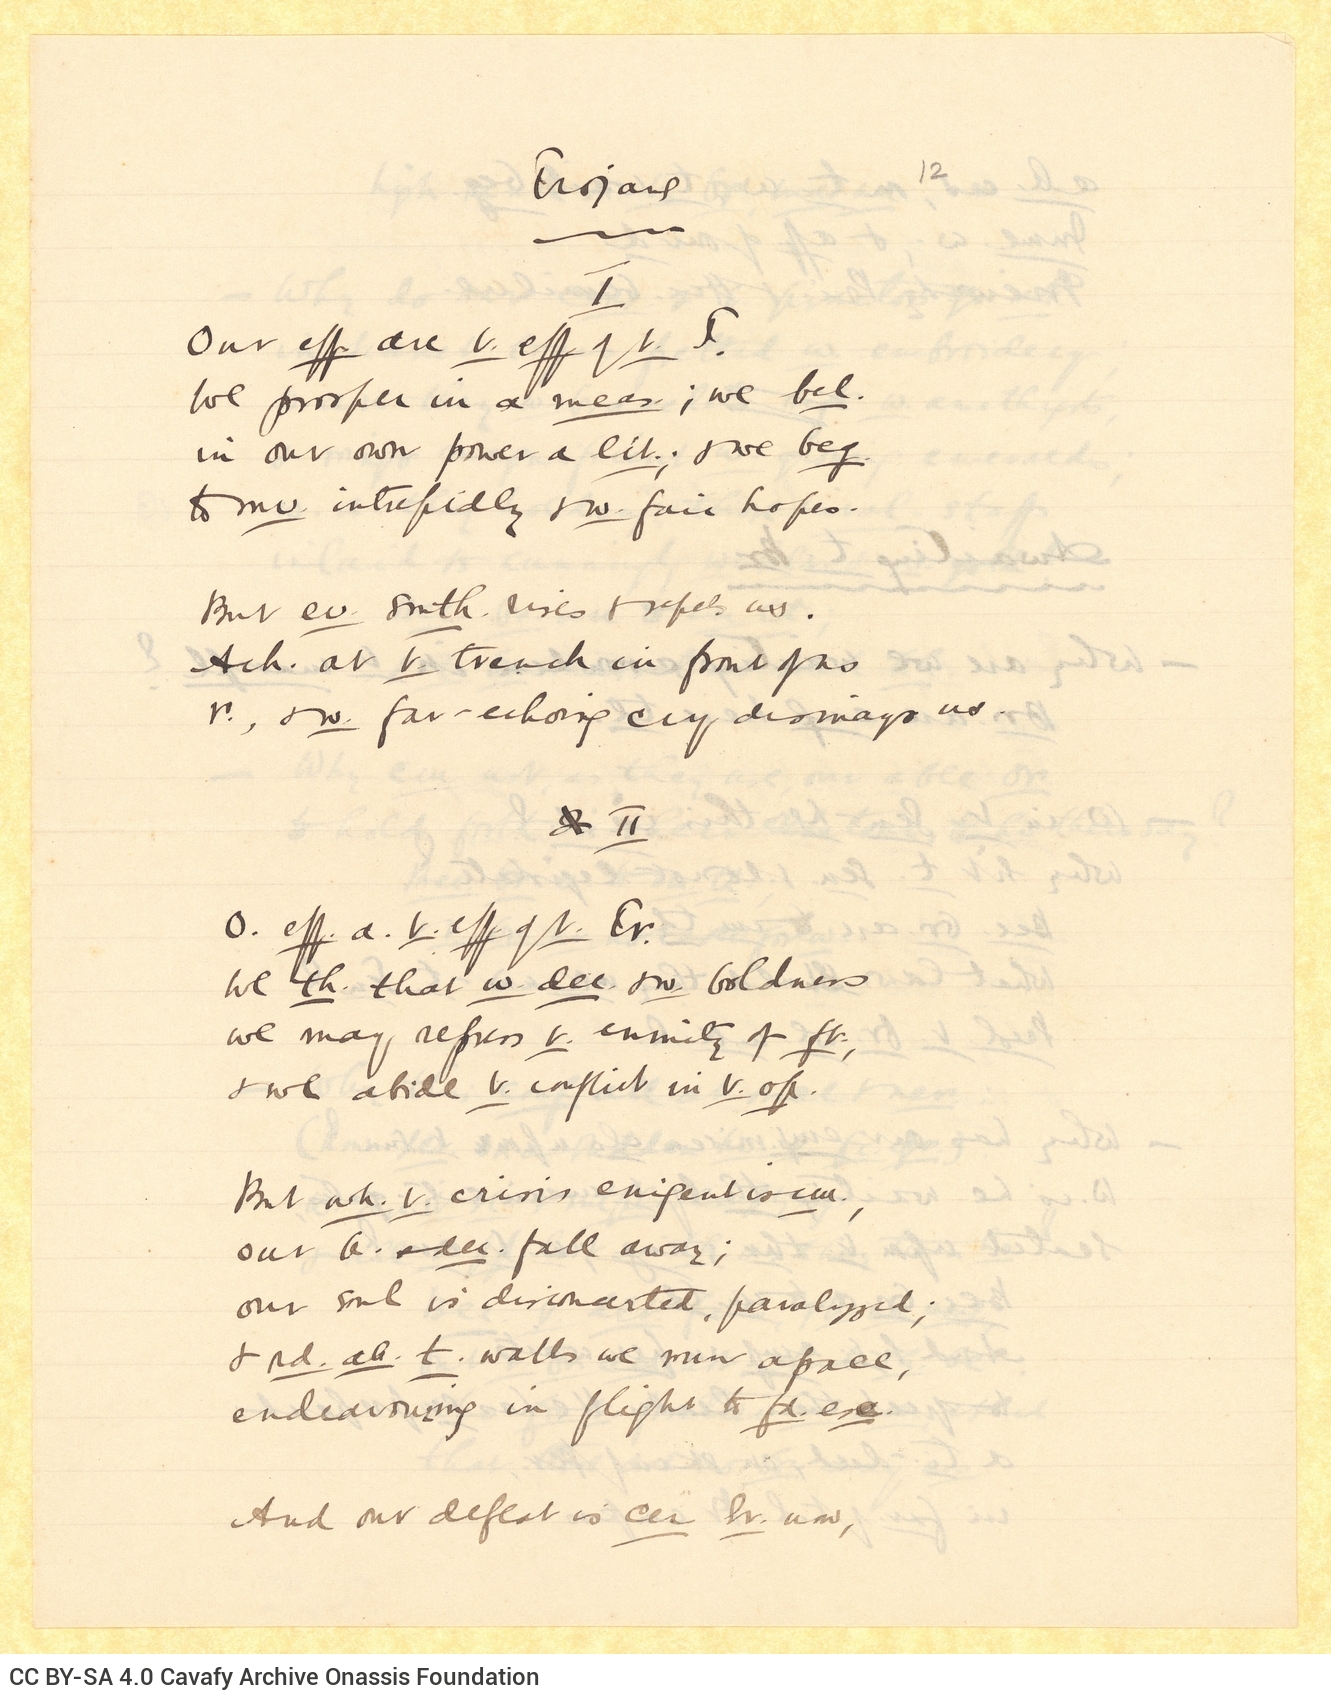 12
Trojans
I
Our eff. are t. eff. of t. T.
We prosper in a meas.; we bel.
in our own power a lit.; & we beg.
to mv. intrepidly & w. fair hopes.
But ev. smth. rises & repels us.
Ach. at t. trench in front of us
r., & w. far-echoing cry dismays us.
II
O. eff. a. t. eff. of t. Tr.
We th. that w. dec. & w. boldness
we may repress t. enmity of ft.,
& we abide t. conflict in t. op.
But wh. t. crisis exigent is
our b. & dec. fall away;
our soul is disconcerted, paralyzed;
& rd. ab. t. walls we run apace,
endeavouring in flight to fd. esc.
And our defeat is cer. nw,
CC BY-SA 4.0 Cavafy Archive Onassis Foundation